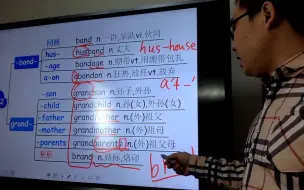 同根 band n.一群,乐团 vi.伙同
-band-
hus- husband n.丈夫 hus-house
-age bandage n.绷带 vt.用绷带包扎
a-on abandon n.狂热,放任 vt.放弃
grand-
-son grandson n.孙子,外孙
-child grandchild n.孙(女),外孙(女)
-father grandfather n.(外)祖父
-mother grandmother n.(外)祖母
-parents grandparents n.(外)祖父母
变形 brand n.商标,烙印